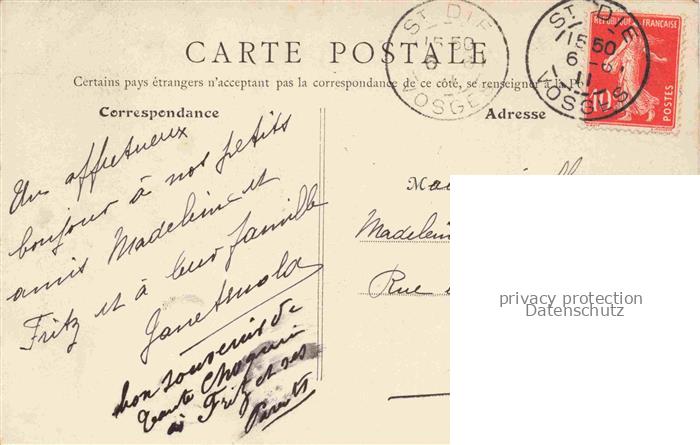 CARTE POSTALE
Certains pays étrangers n'acceptant pas la correspondance de ce côté, se renseigner à la Po
Correspondance
Adresse
ST DIE
15 50
6 - 6
11
VOSGES
ST DIE
15 50
6 - 6
11
VOSGES
REPUBLIQUE FRANÇAISE
10
POSTES
Un affectueux
bonjour à nos petits
amis Madeleine et
Fritz et à leur famille
bon souvenir de
tante
à Fritz et ses
Parents
Madelein
Rue
privacy protection
Datenschutz